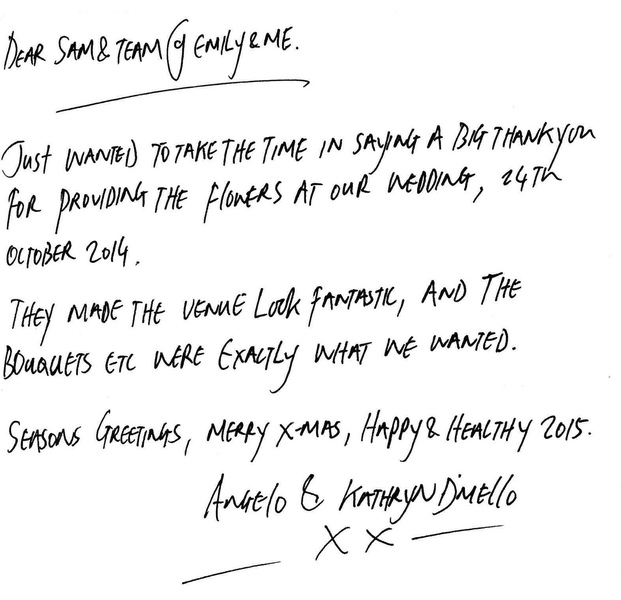 DEAR SAM & TEAM @ EMILY & ME.
JUST WANTED TO TAKE THE TIME IN SAYING A BIG THANK YOU
FOR PROVIDING THE FLOWERS AT OUR WEDDING, 24TH
OCTOBER 2014.
THEY MADE THE VENUE LOOK FANTASTIC, AND THE
BOUQUETS ETC WERE EXACTLY WHAT WE WANTED.
SEASONS GREETINGS, MERRY X-MAS, HAPPY & HEALTHY 2015.
ANGELO & KATHRYN D'MELLO
X X